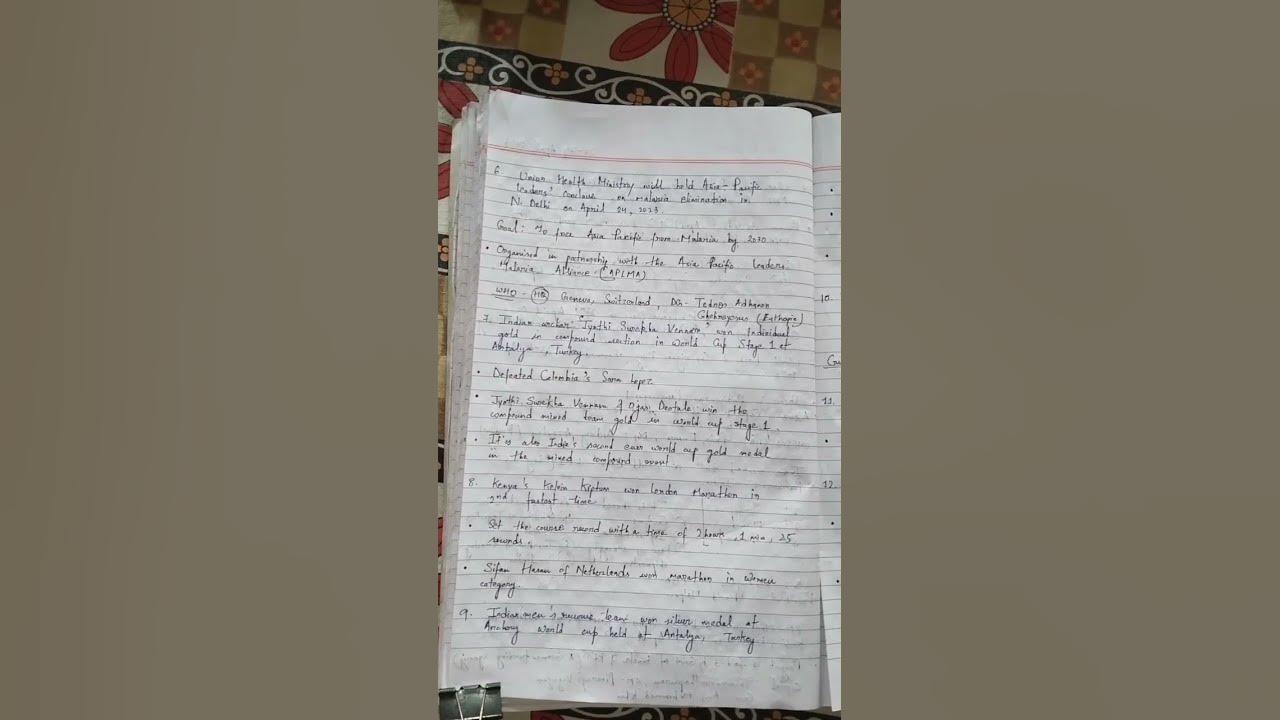 6. Union Health Ministry will hold Asia-Pacific
leaders' conclave on Malaria elimination in
N. Delhi on April 24, 2023.
Goal: To free Asia Pacific from Malaria by 2030
• Organised in partnership with the Asia Pacific Leaders
Malaria Alliance (APLMA)
WHO - HQ Geneva, Switzerland, DG- Tedros Adhanom
Ghebreyesus (Ethopia)
7. Indian archar "Jyothi Surekha Vennam" won Individual
gold in compound section in World Cup Stage 1 at
Antalya, Turkey.
• Defeated Colombia's Sara Lopez
• Jyothi Surekha Vennam & Ojas Deotale win the
compound mixed team gold in world cup stage 1.
• It is also India's second ever world cup gold medal
in the mixed compound event.
8. Kenya's Kelvin Kiptum won London Marathon in
2nd fastest time
• Set the course record with a time of 2 hours, 1 min, 25
seconds.
• Sifan Hasan of Netherlands won marathon in Women
category.
9. Indian men's recurve team won silver medal at
Archery world cup held at Antalya, Turkey
10.
Gu
11.
12.